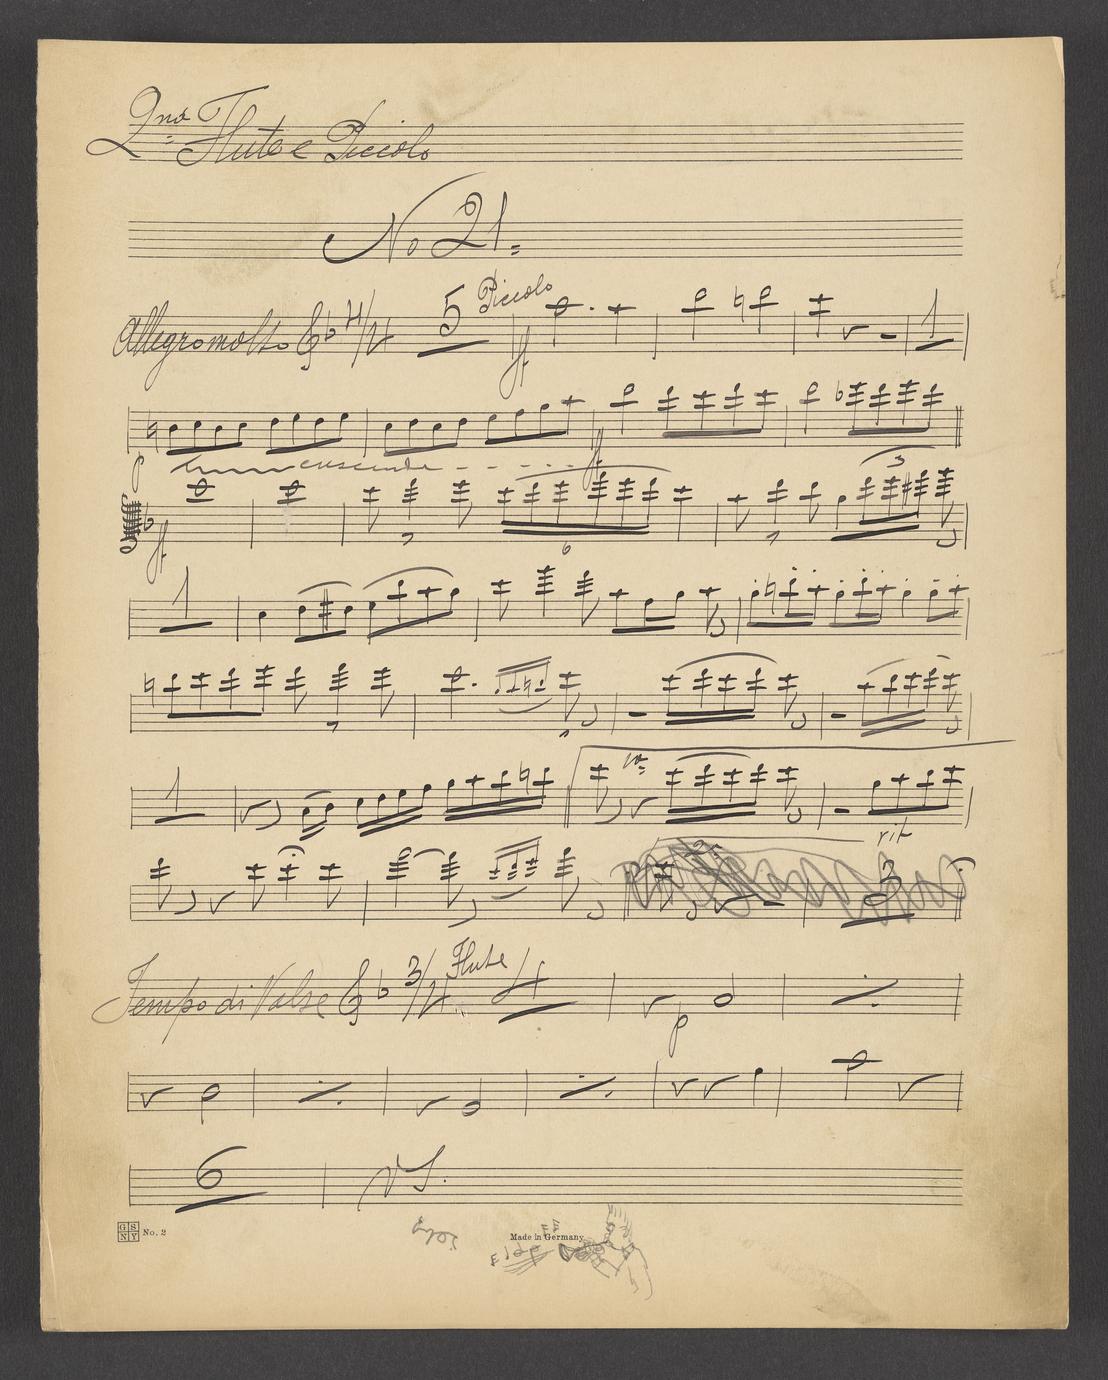 2nd Flute e Piccolo
No 21
Allegro molto 4/4 5 Piccolo ff 1
p crescendo ff
ff 7 6 7 3
1
7
1 1a
rit
2a 3
Tempo di Valse 3/4 Flute 4
p
6 VS.
GS NY No. 2
Made in Germany